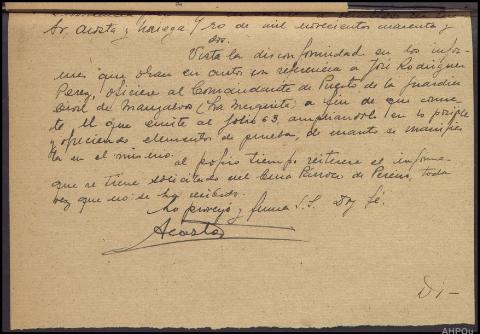 Sr. Acosta y Noriega 4/30 de mil novecientos cuarenta y
dos.
Vista la disconformidad en los infor-
mes que obran en autos con referencia a José Rodriguez
Perez, oficiese al Comandante de Puesto de la Guardia
Civil de Manzalvos (La Mezquita) a fin de que
el que emite al folio 63, ampliandolo en lo posible
y ofreciendo elementos de prueba, de cuanto se manifies-
ta en el mismo.
al propio tiempo reiterese el informe
que se tiene solicitado del Cura Parroco de Pereiro, toda
vez que no se ha recibido.
Lo proveyó y firma S.S. Doy fé.
Acosta
Di-
AHPOu